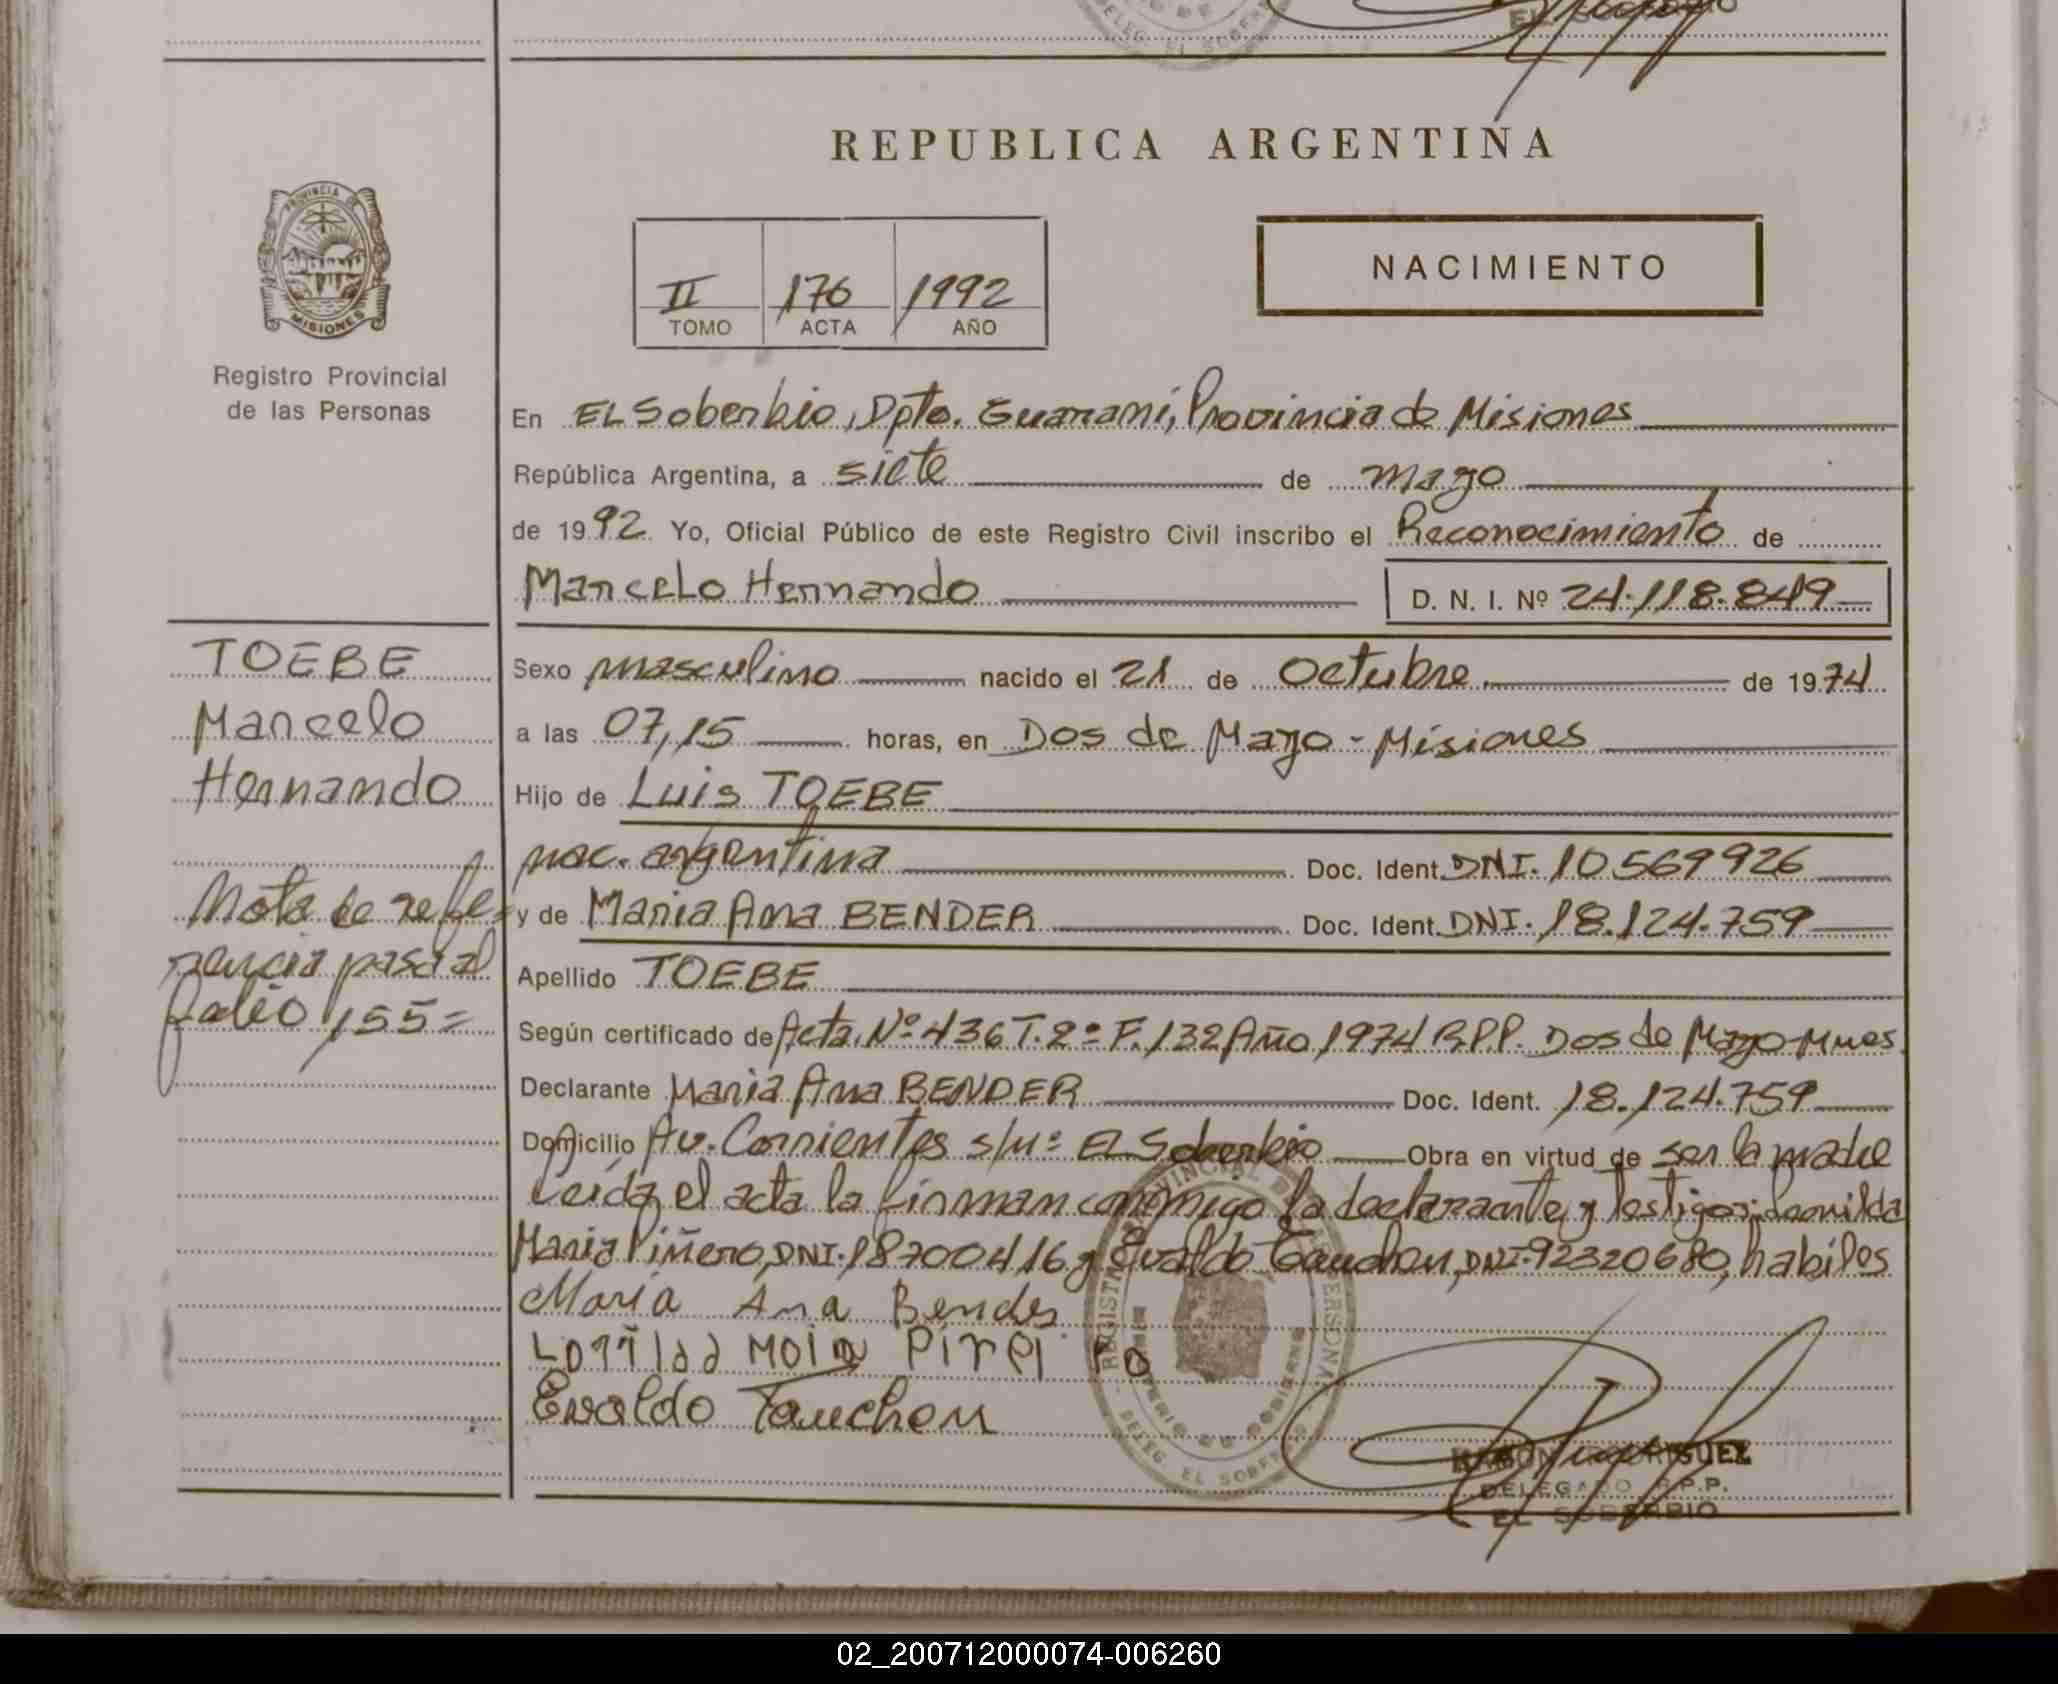 DELEG. EL SOBER
EL SOBERBIO
REPUBLICA ARGENTINA
PROVINCIA DE
MISIONES
Registro Provincial
de las Personas
II 176 1992
TOMO ACTA AÑO
NACIMIENTO
En EL Soberbio, Dpto. Guarani, Provincia de Misiones
República Argentina, a siete de mayo
de 1992 Yo, Oficial Público de este Registro Civil inscribo el Reconocimiento de
Marcelo Hernando D. N. I. Nº 24.118.849
TOEBE
Marcelo
Hernando
Nota de refe-
rencia pasa al
folio 155=
Sexo masculino nacido el 21 de Octubre. de 1974
a las 07,15 horas, en Dos de Mayo - Misiones
Hijo de Luis TOEBE
nac. argentina Doc. Ident. DNI. 10569926
y de Maria Ana BENDER Doc. Ident. DNI. 18.124.759
Apellido TOEBE
Según certificado de Acta Nº 436 T. 2º F. 132 Año 1974 R.P.P. Dos de Mayo-Mnes.
Declarante Maria Ana BENDER Doc. Ident. 18.124.759
Domicilio Av. Corrientes s/nº EL Soberbio Obra en virtud de ser la madre
Leida el acta la firman conmigo la declarante y testigos:
Maria Piñero, DNI. 18700416 y Evaldo Tauchen, DNI. 92320680, habiles
Maria Ana Bender
Evaldo Tauchen
DELEG. EL SOBERBIO
RAMON RODRIGUEZ
DELEGADO R.P.P.
EL SOBERBIO
02_200712000074-006260